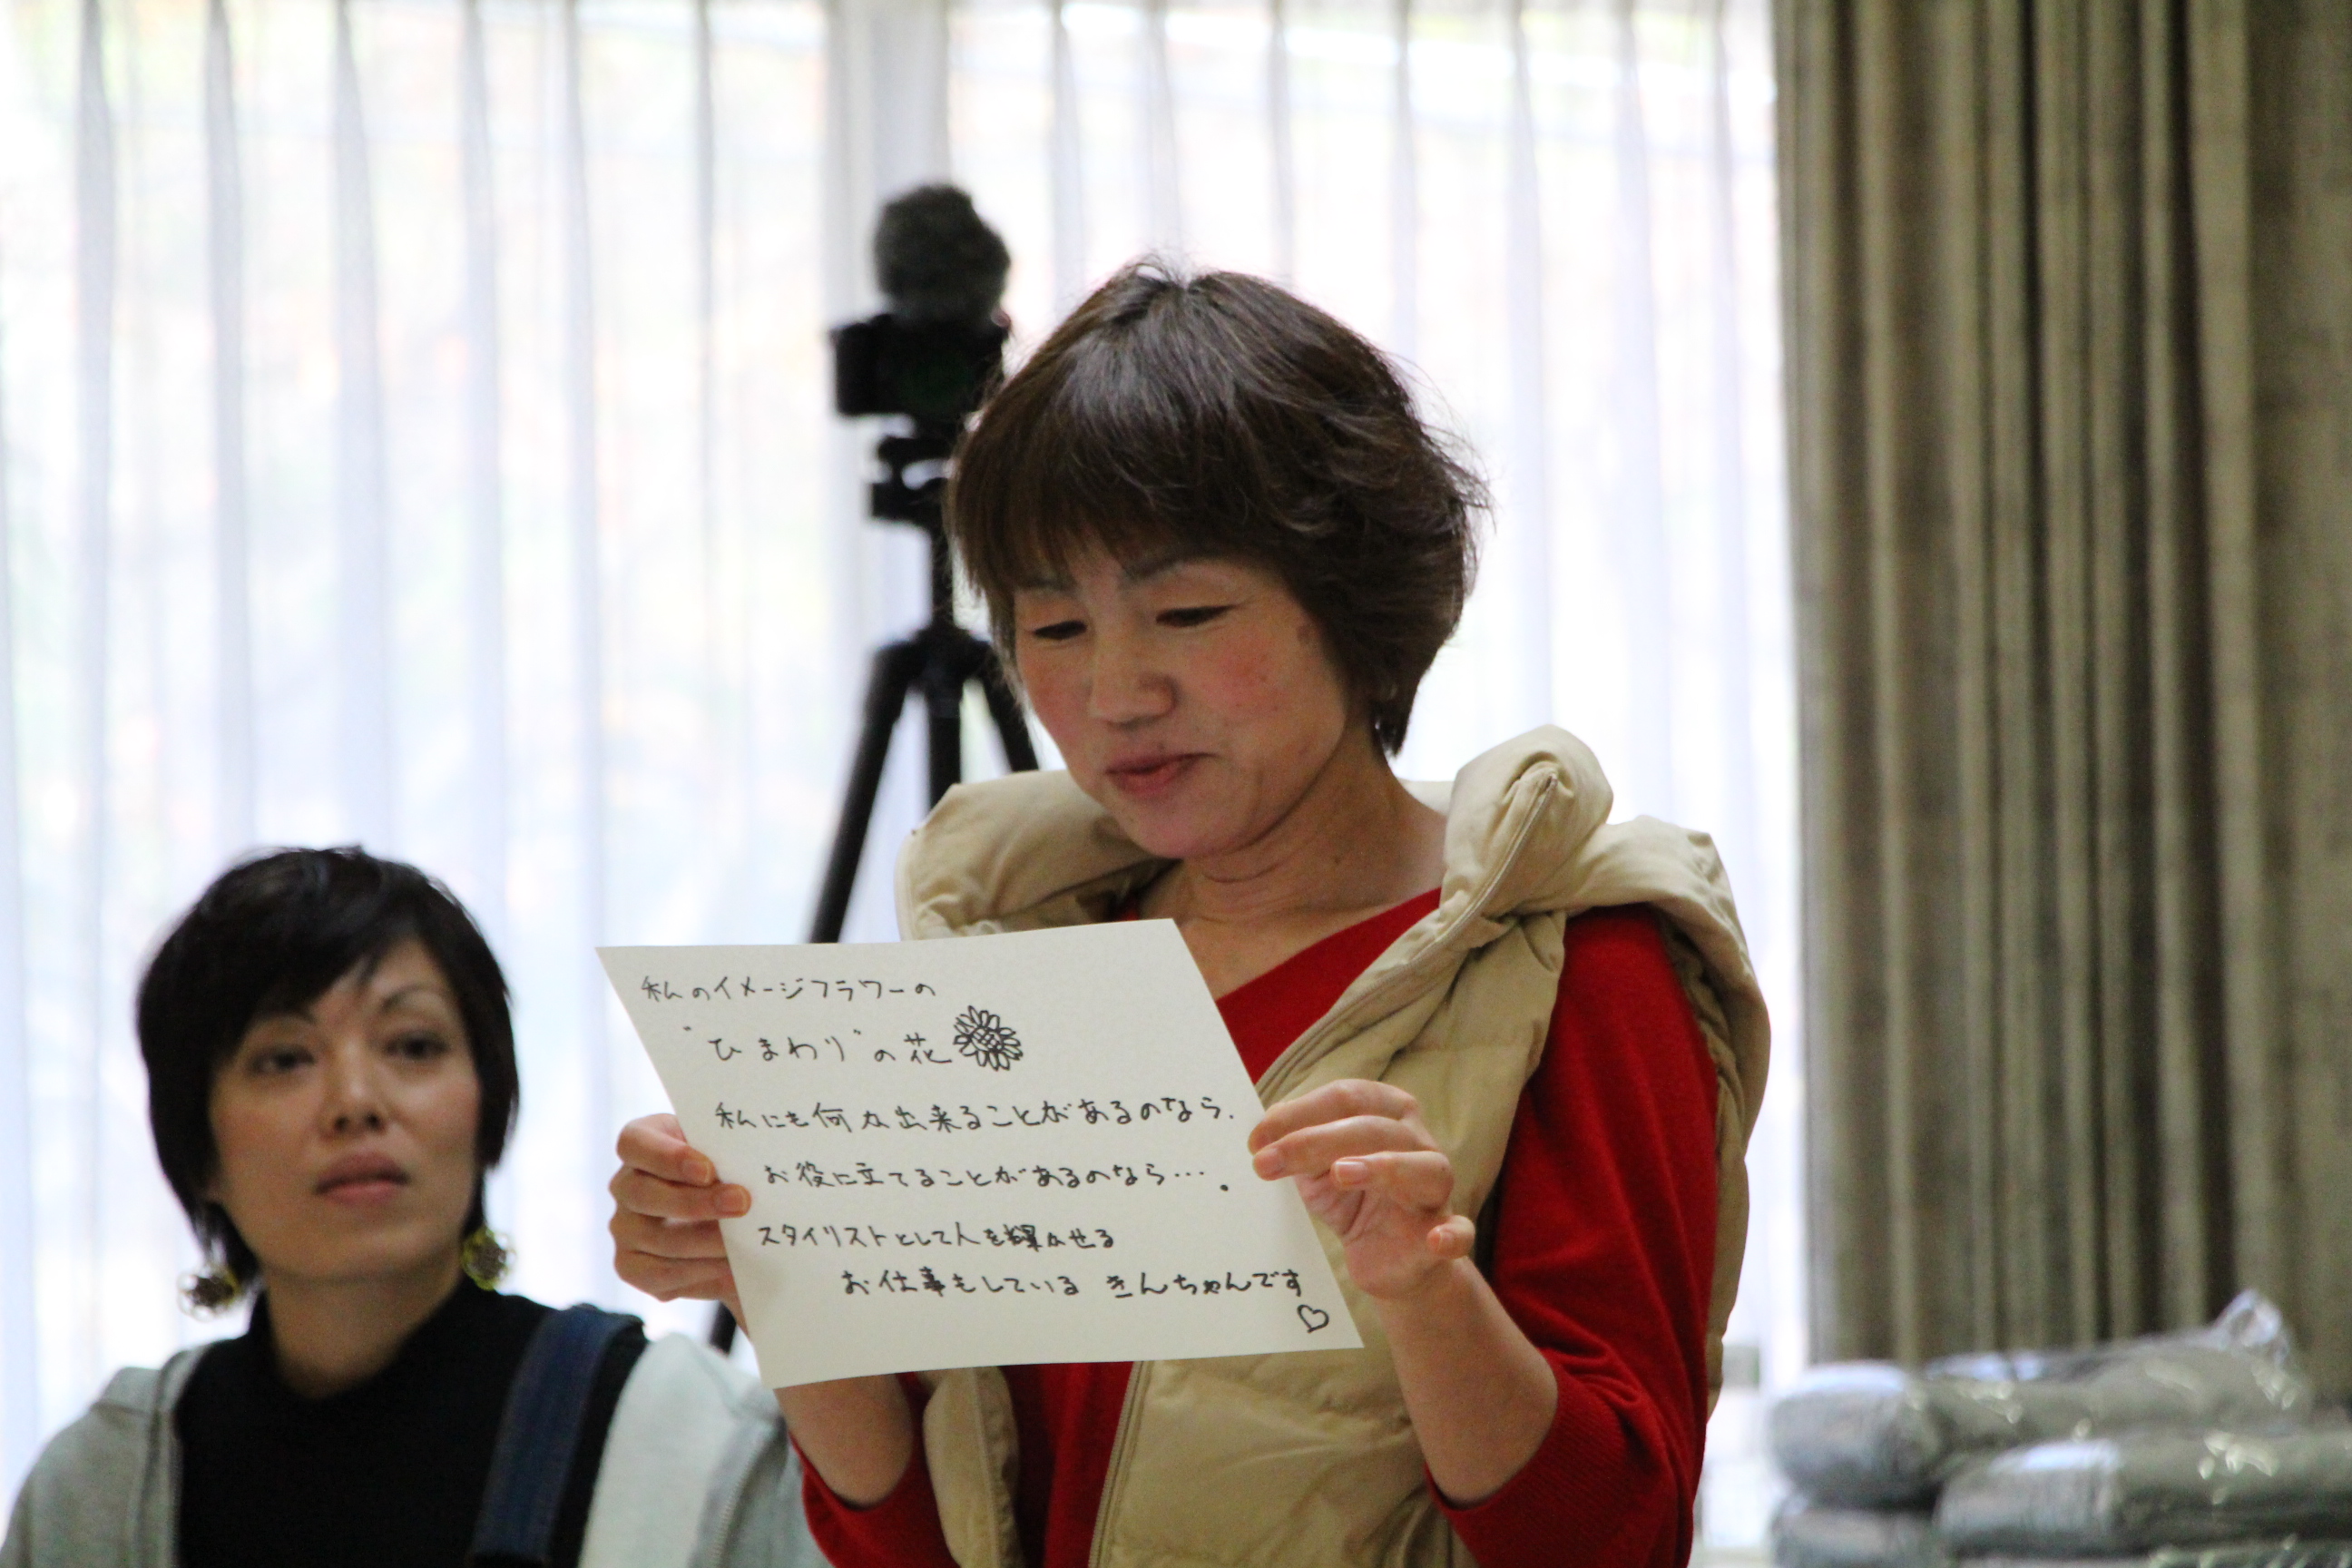 私のイメージフラワーの
"ひまわり"の花
私にも何か出来ることがあるのなら.
お役に立てることがあるのなら・・・。
スタイリストとして人を輝かせる
お仕事もしている きんちゃんです